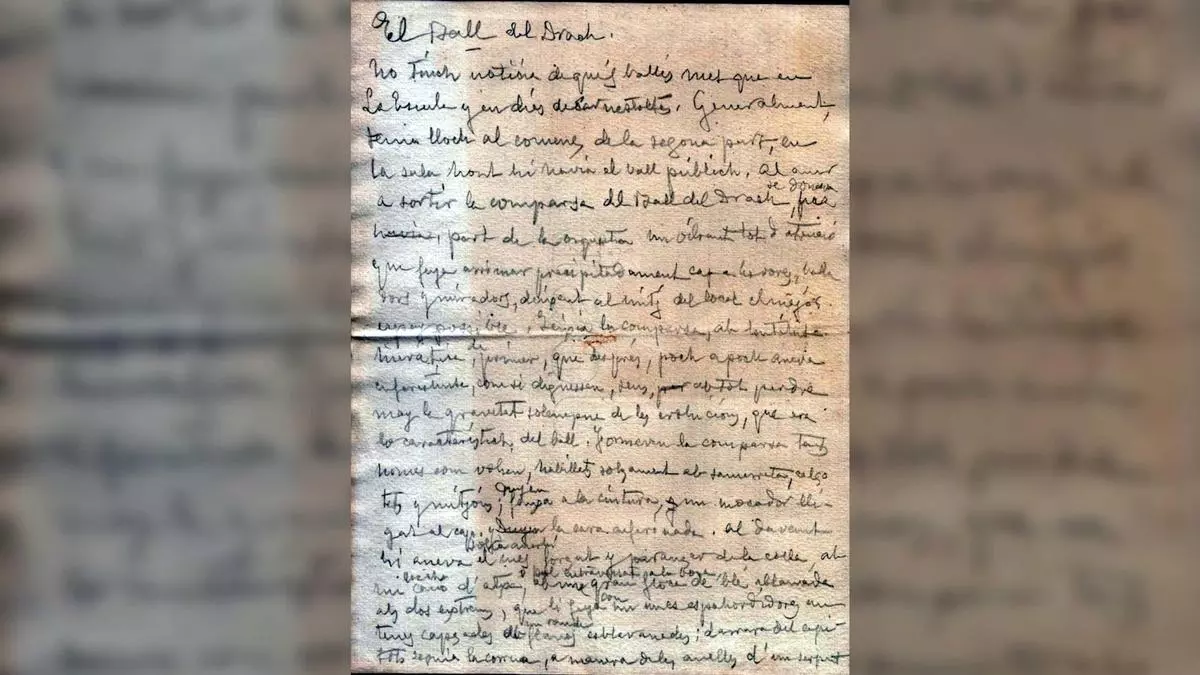 El Ball del Drach.
No tinch noticia de qu'es ballés mes que en
La Escala y en diés de Carnestoltes. Generalment,
tenia lloch al comens de la segona part, en
la sala hont hi havia el ball públich. Al anar
se donava
a sortir la comparsa del Ball del Drach,
havia, part de la orquesta un vibrant toch d'atenció
que feya arrimar precipitadament cap a les vores, balla
dors y miradors, deixant al mitj del local el mejór
espay possible. Sortía la comparsa, ab lentitut
primer, que després, poch a poch anava
enforintse, com si digessem, sens, per ab tot perdre
may la gravetat solempne de les evolucións, que era
lo característich del ball. Formaven la comparsa tants
homes com volien, habillats solzament ab samarreta, calço
tets y mitjóns;
duyen
faixa a la cintura, y un mocador lli-
gat al cap, y Duyen la cara enfarinada. Al davant
hi anava el mes forçut y
de la colla ab
un
d'atxa, ab una gran floca de
als dos extrems, que li feya
con
un
unes espahordidores
capsades de flames
; darrera del capi-
tost seguia la corrua, a manera de les anelles d'un serpet